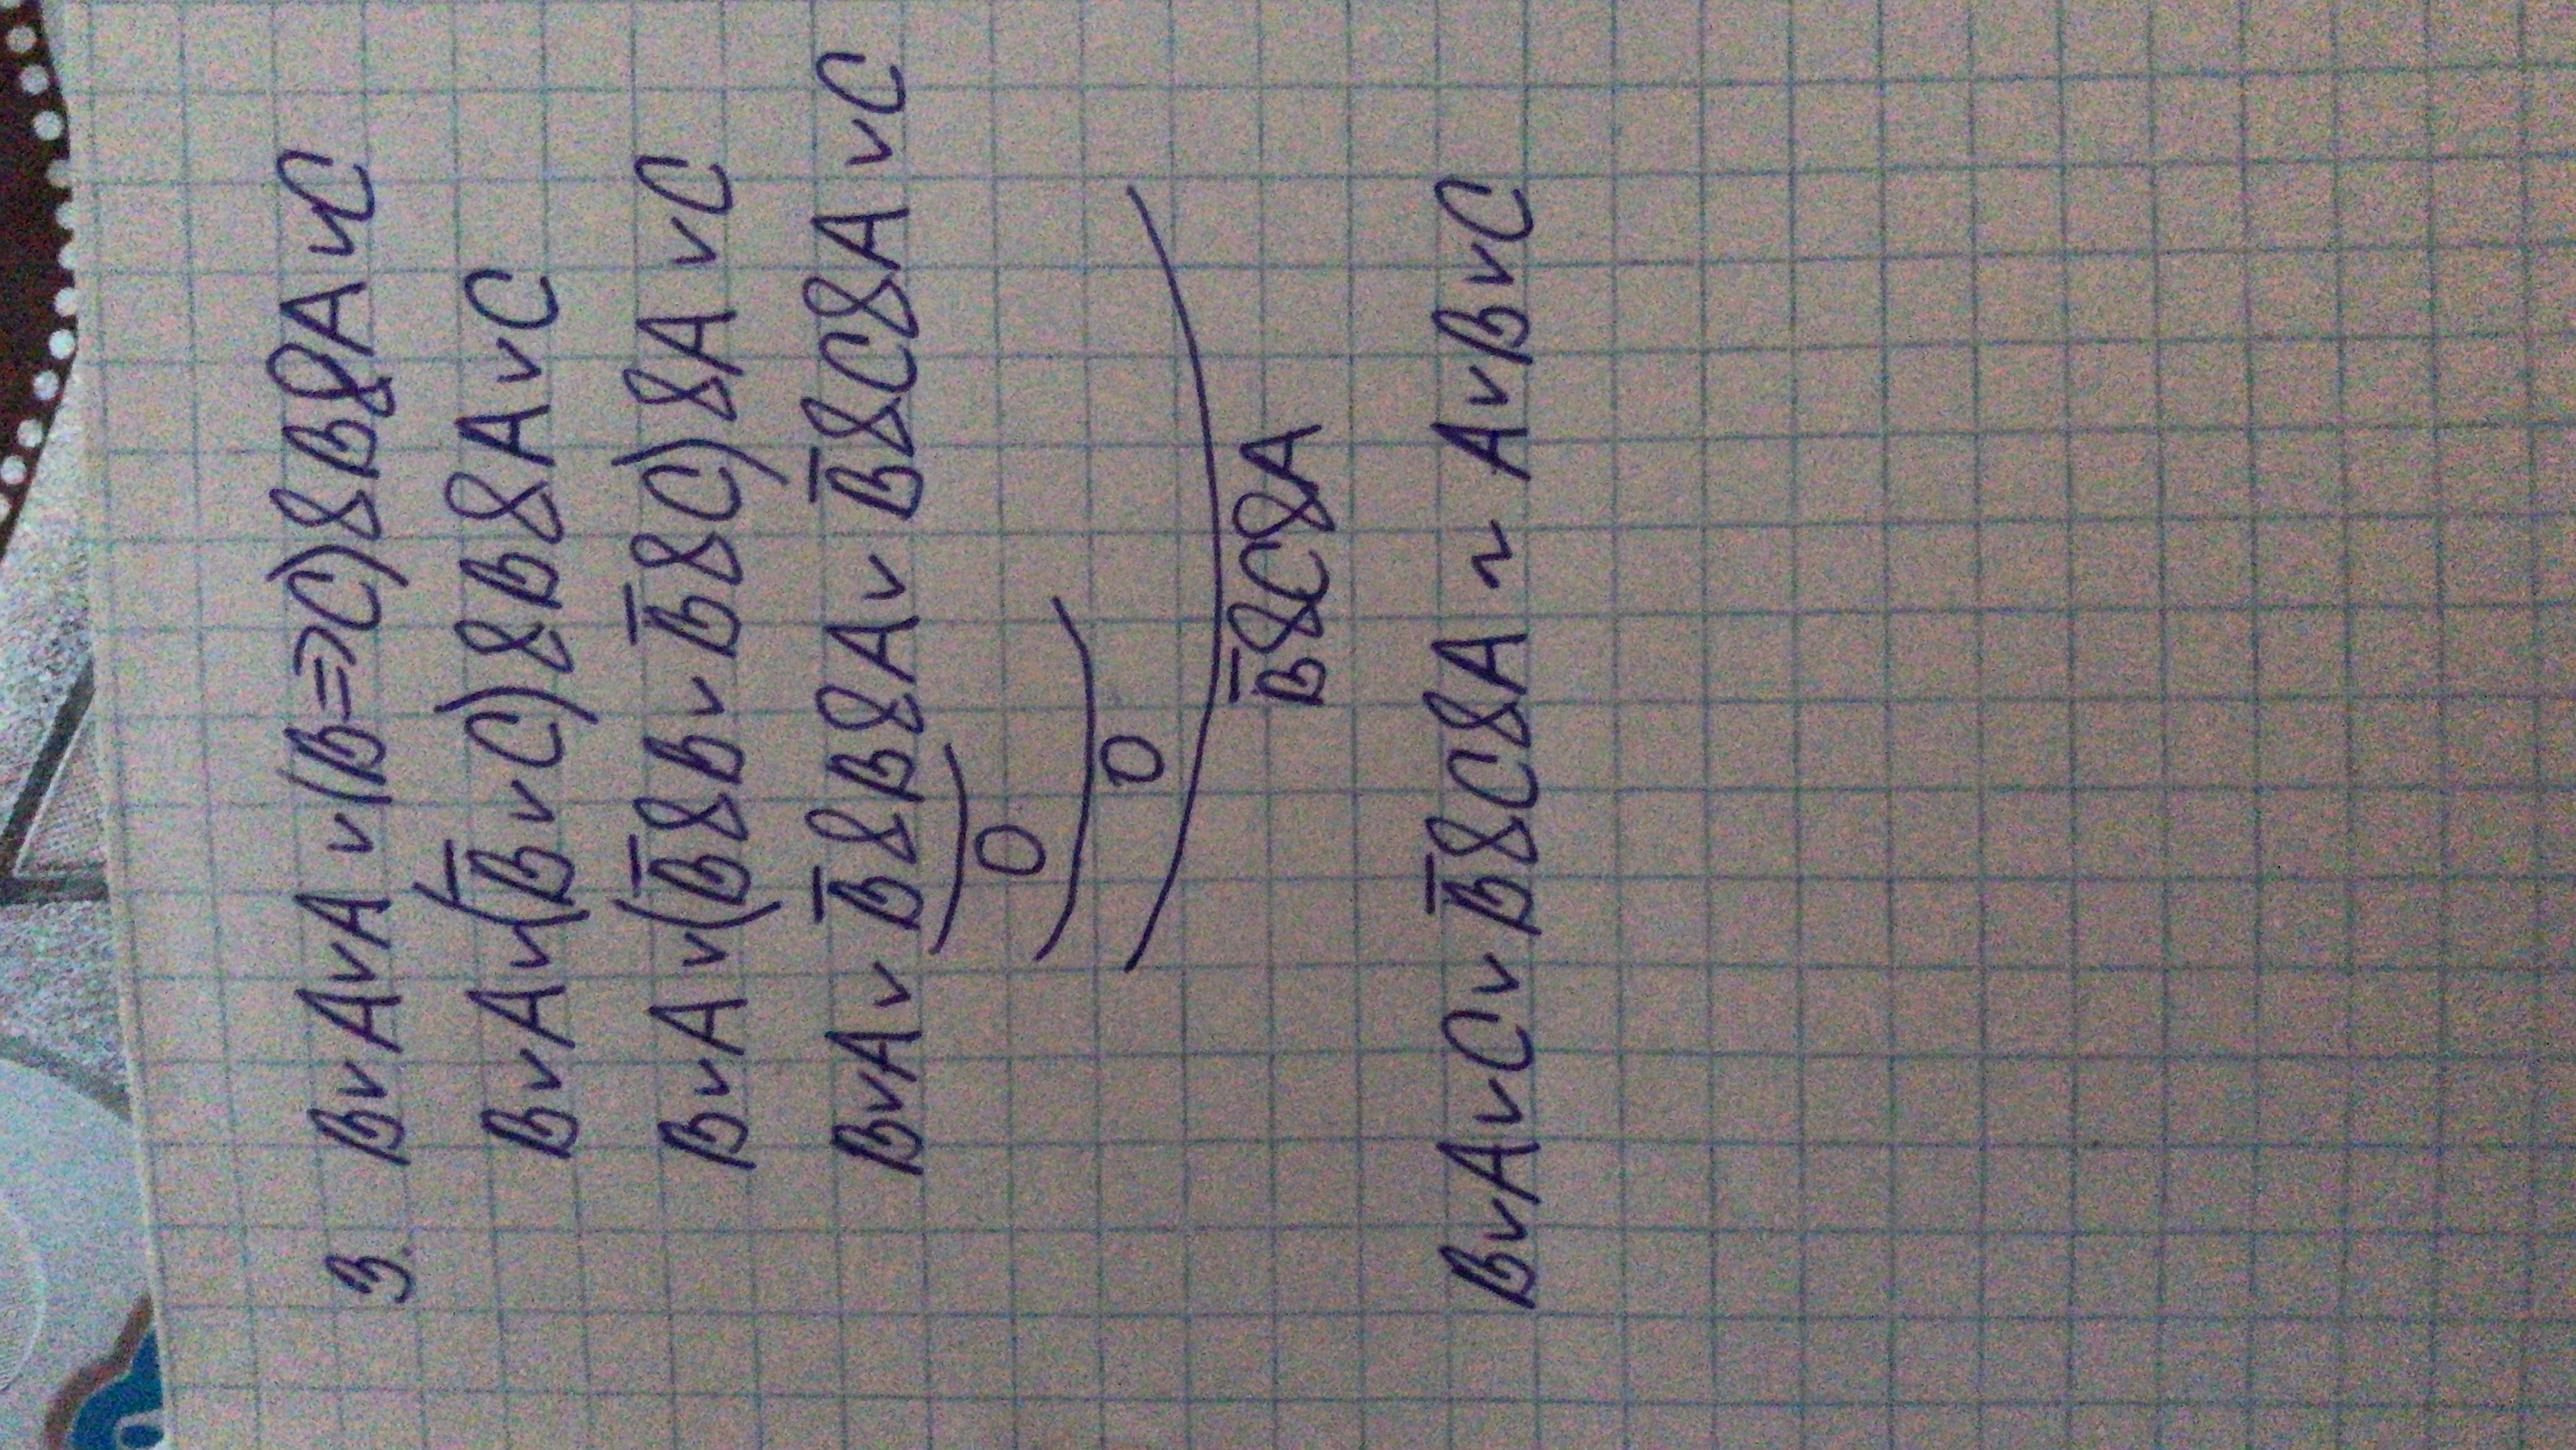 3. B∨A∨A ∨(B=>C)&B&A ∨C
B∨A∨(B̅∨C)&B&A∨C
B∨A∨(B̅&B∨B̅&C)&A ∨C
B∨A∨ B̅&B&A∨ B̅&C&A ∨C
0
0
B̅&C&A
B∨A∨C∨B̅&C&A ~ A∨B∨C